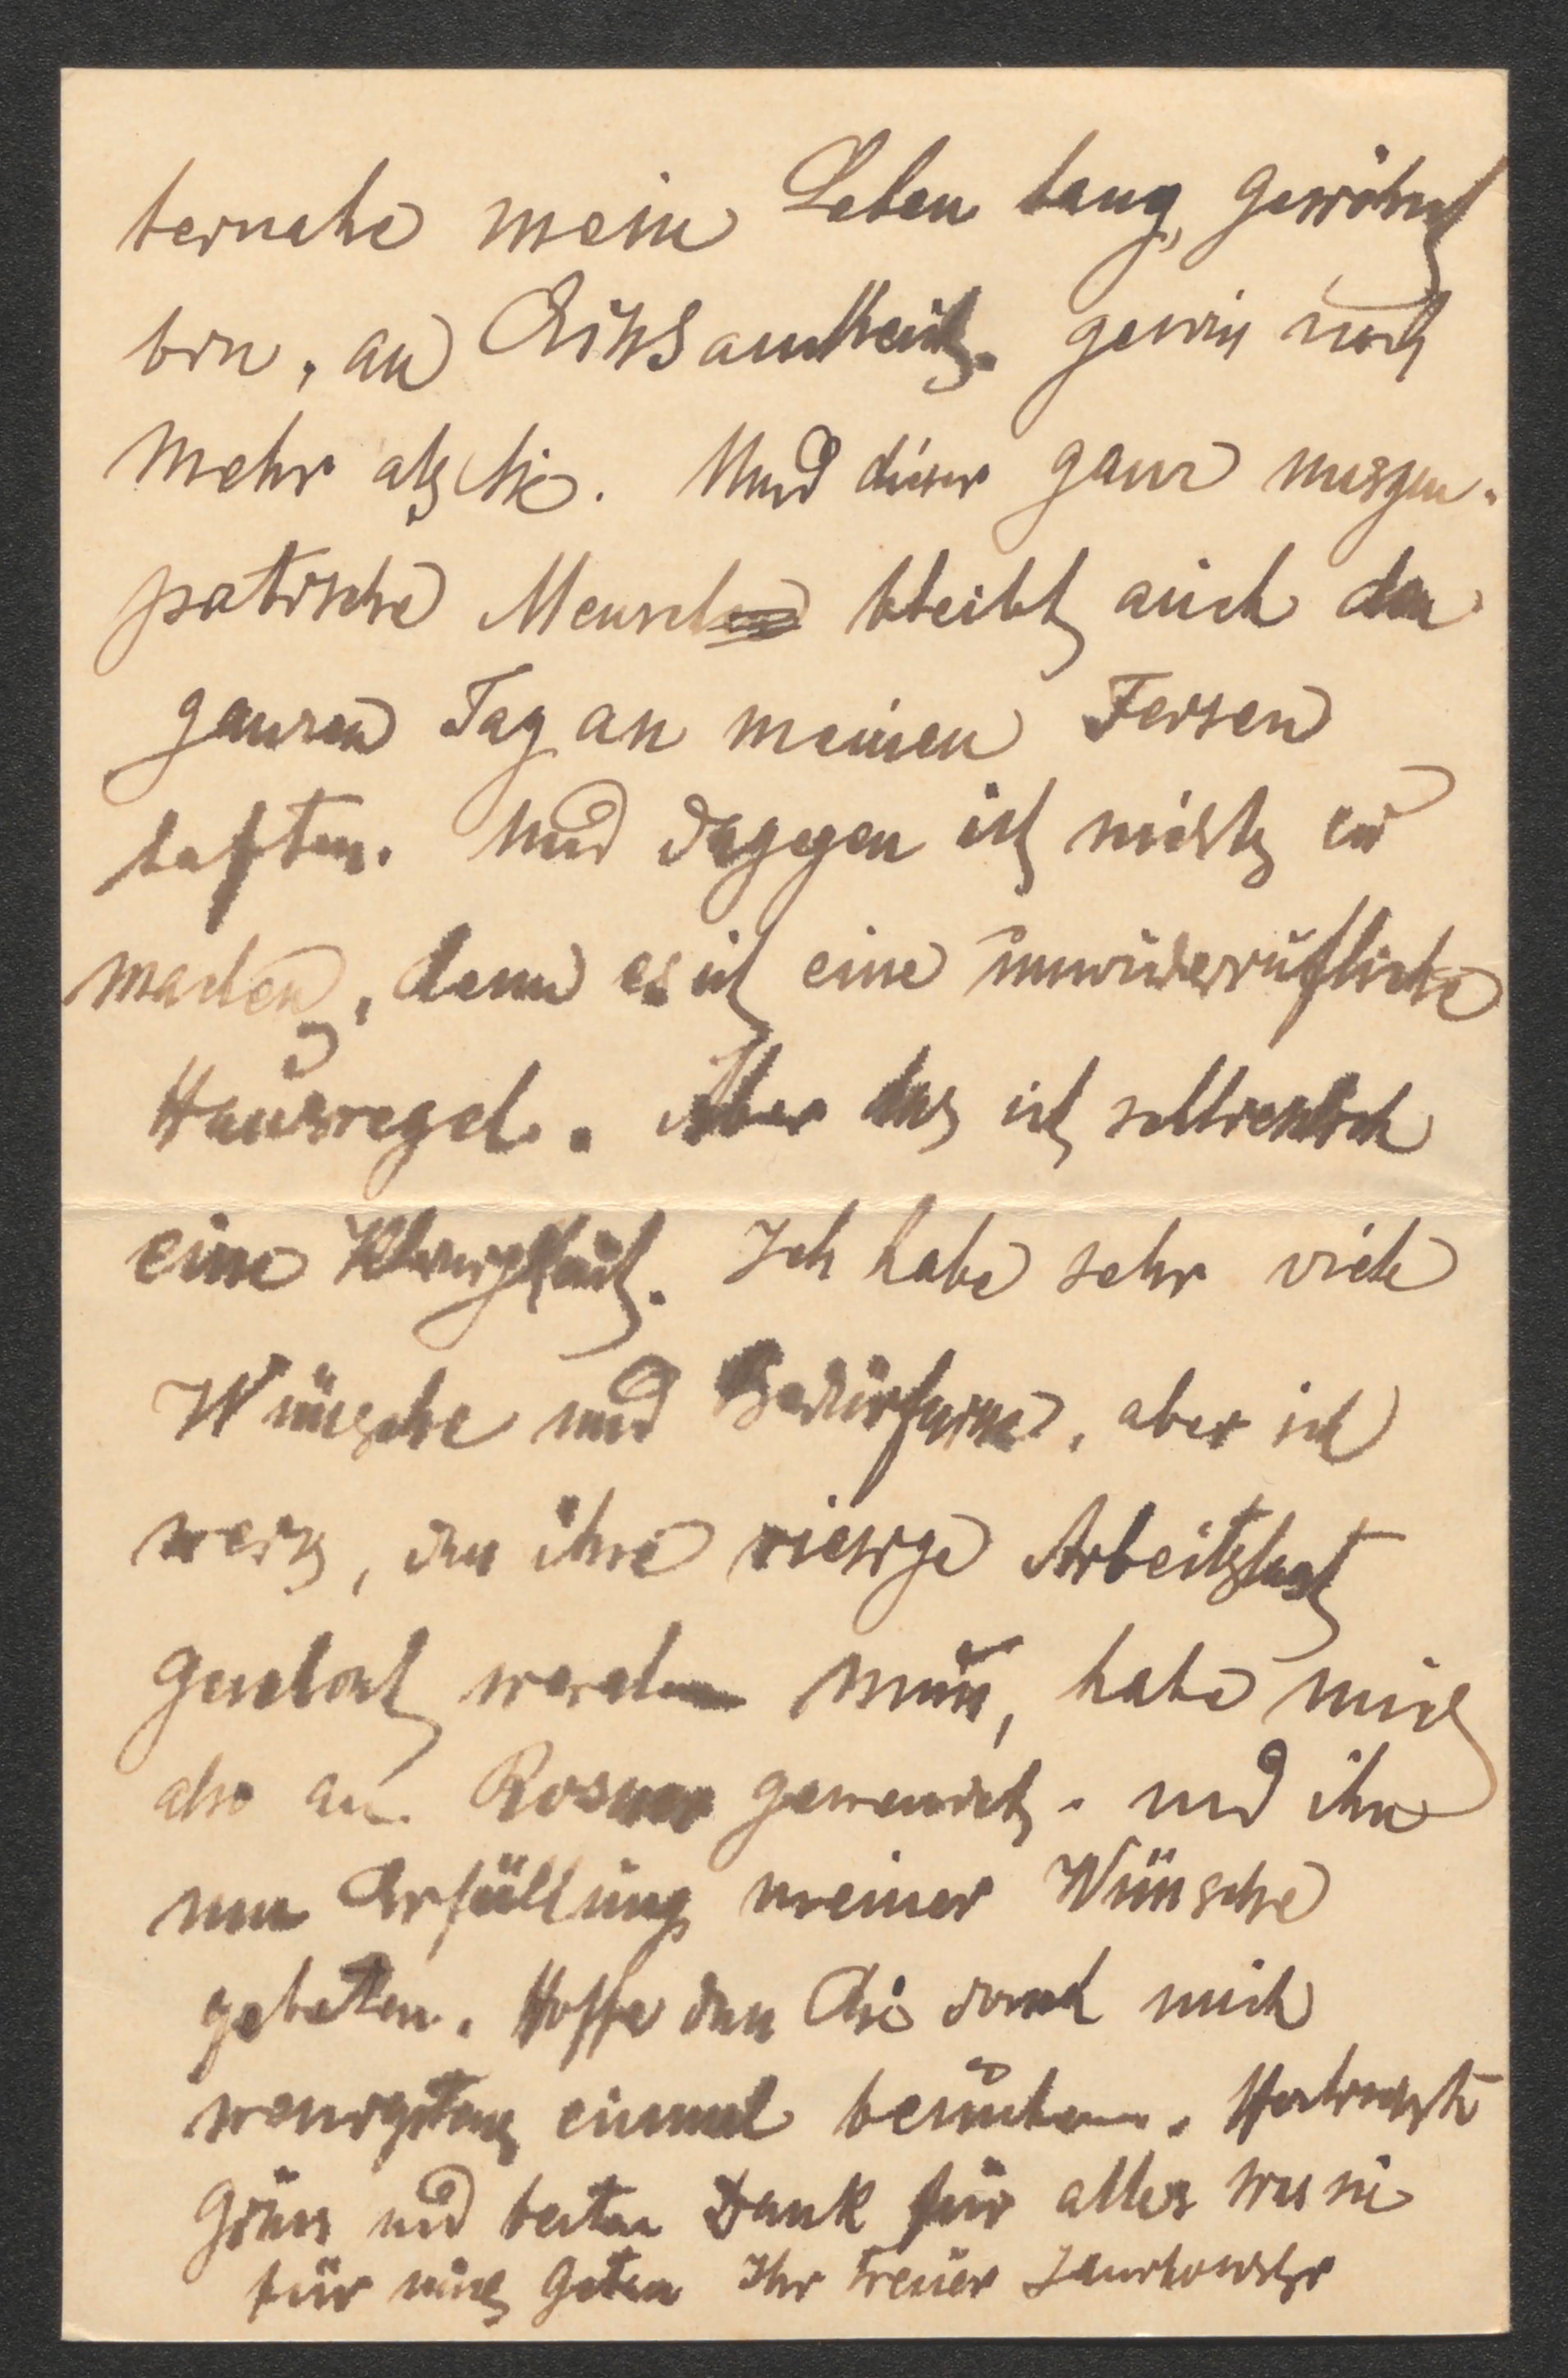 bernahe mein Leben lang, gewöhnt
bin, an Einsamkeit. gewiss noch
mehr als Sie. Und dieser ganz unsym-
patische Mensch bleibt auch den
ganzen Tag an meinen Fersen
haften. Und dagegen ist nichts zu
machen, denn es ist eine unwiderrufliche
Hausregel. Aber das ist schliesslich
eine Kleinigkeit. Ich habe sehr viele
Wünsche und Bedürfnisse, aber ich
weis, das ihre riesige Arbeitslast
geschont werden muss, habe mich
also an Rosner gewendet. und ihn
um Erfüllung meiner Wünsche
gebeten. Hoffe das Sie doch mich
wenigstens einmal besuchen. Herlichste
Grüss und besten Dank für alles was sie
für mich taten Ihr treuer Janikowski